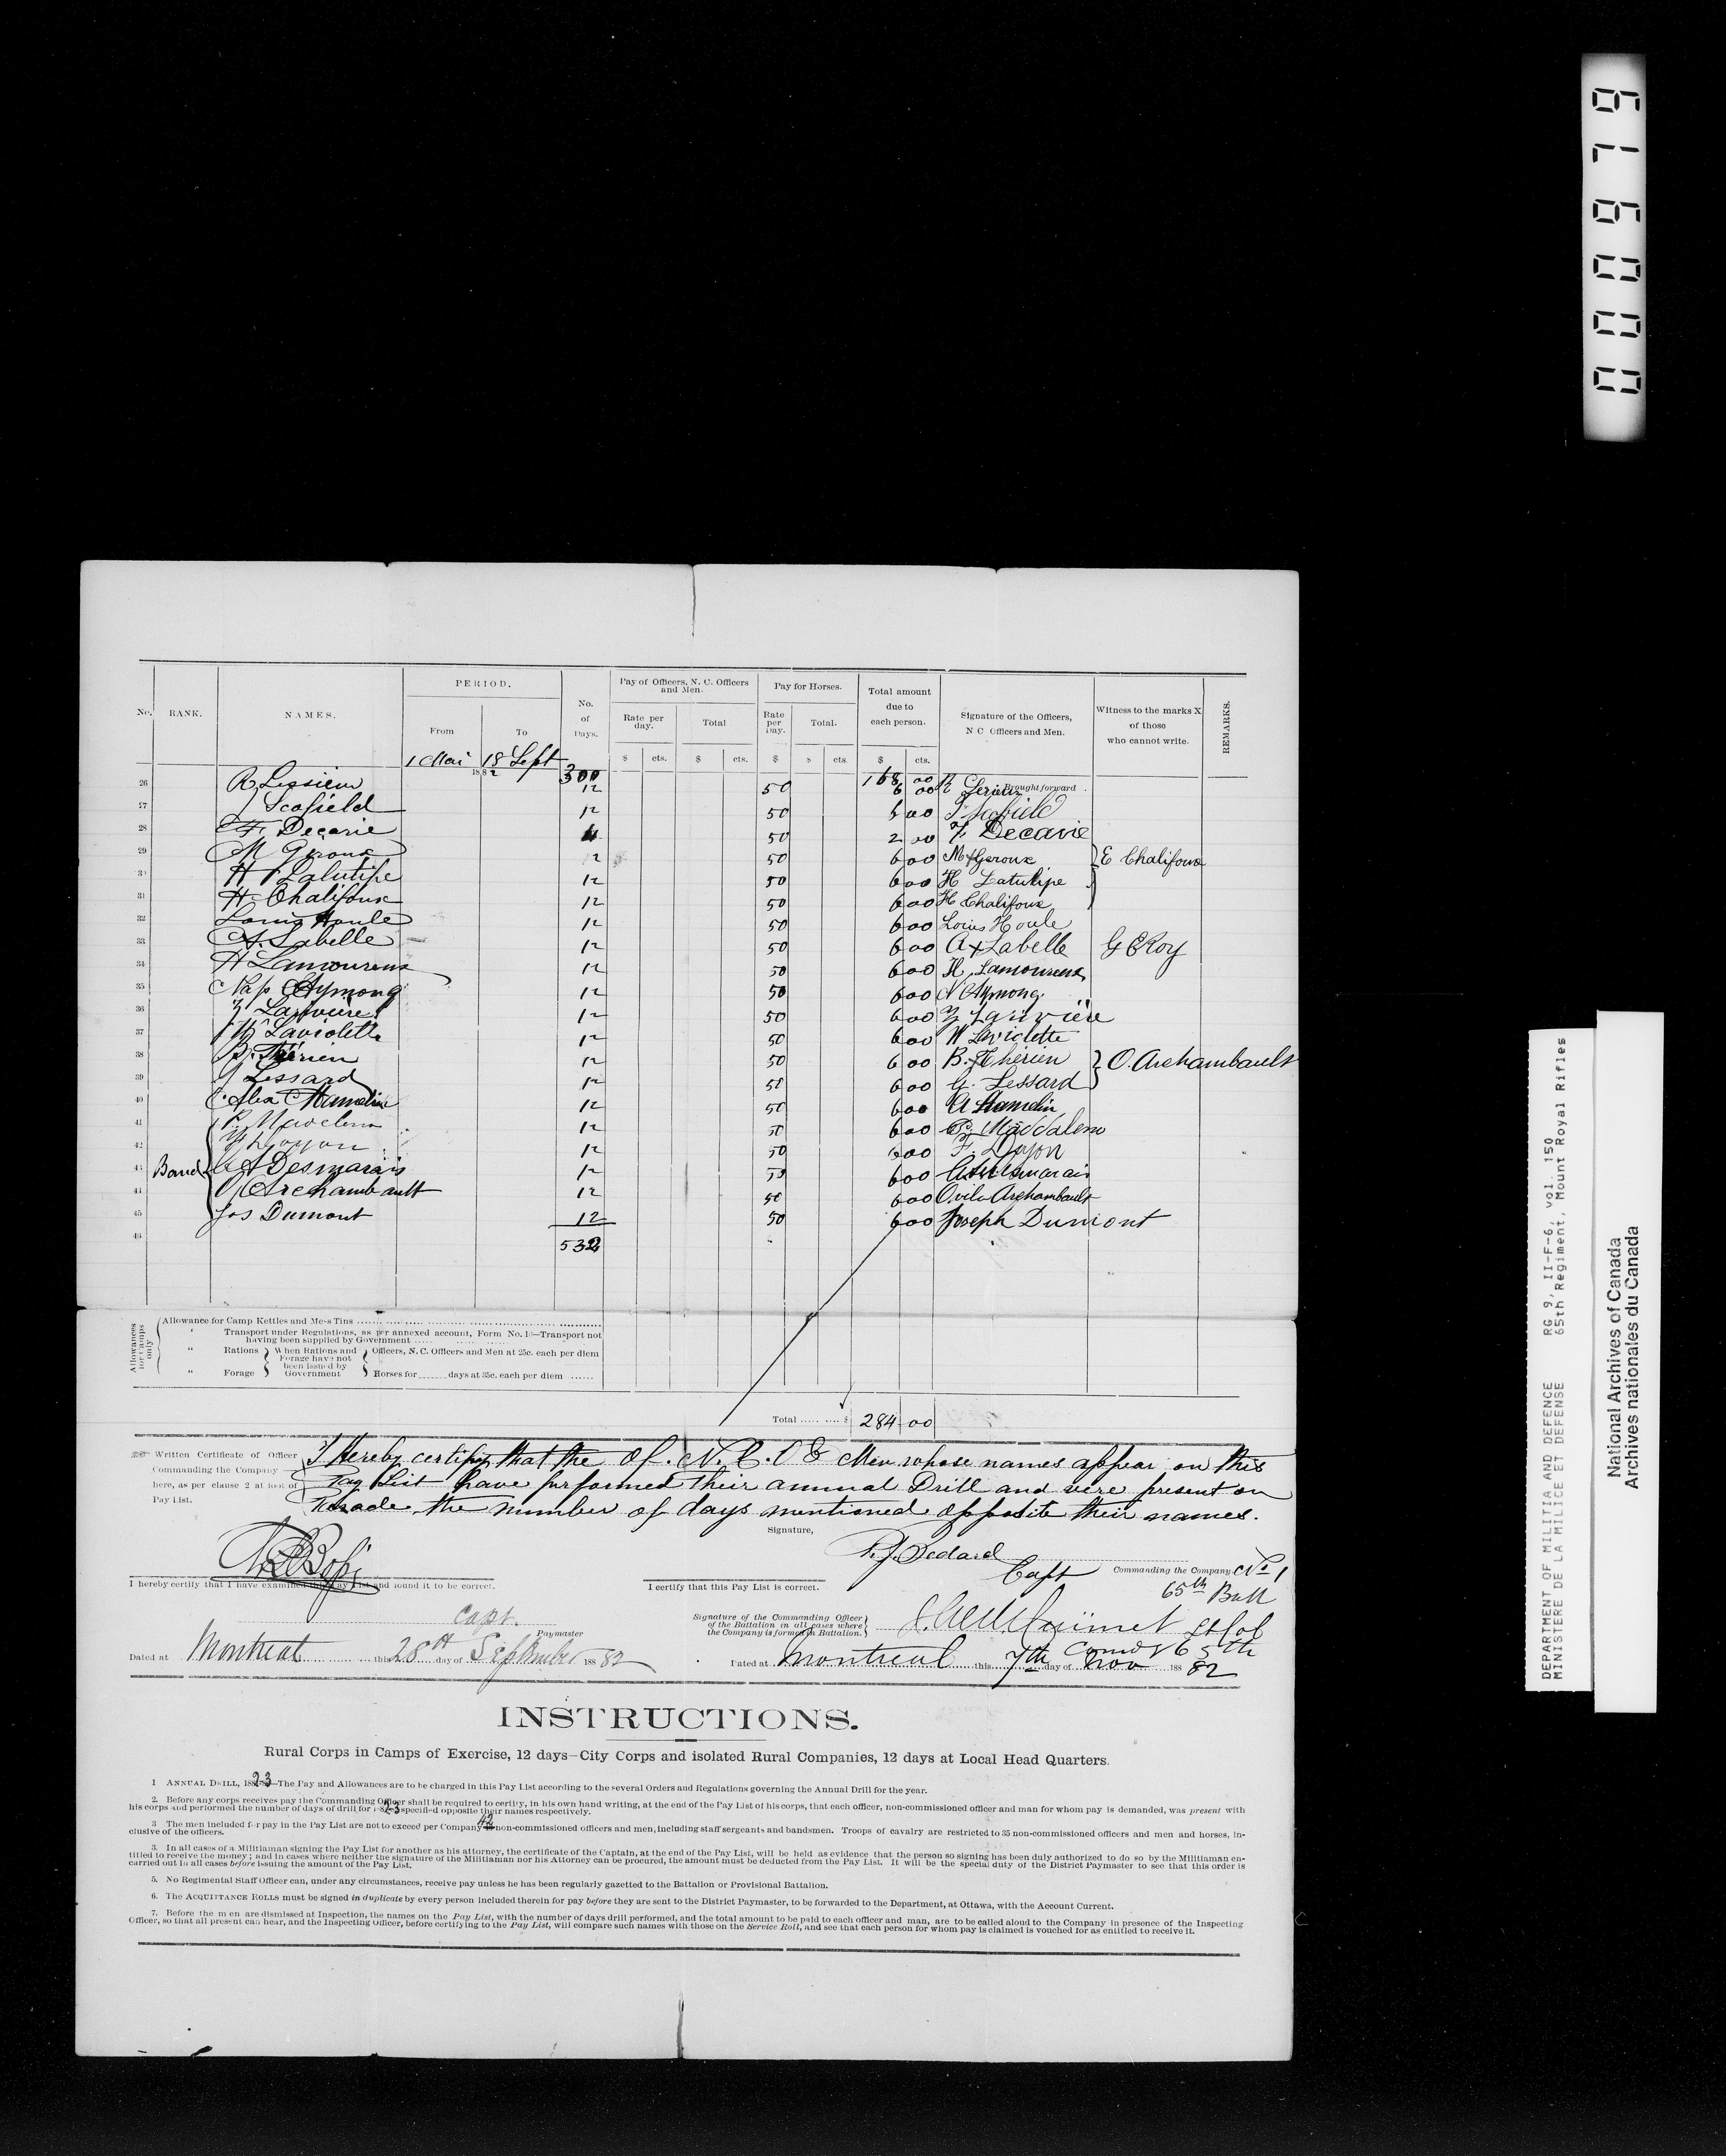 000979
No. RANK. NAMES. PERIOD. No. of Days. Pay of Officers, N. C. Officers and Men. Pay for Horses. Total amount due to each person. Signature of the Officers, N C Officers and Men. Witness to the marks X of those who cannot write. REMARKS.
From To Rate per day. Total Rate per Day. Total.
1 Mai 18 Sept $ cts. $ cts. $ $ cts. $ cts.
1882 300 168 00 Brought forward
26 R Lessieur 12 50 6 00 R
27 J Scofield 12 50 6 00 J Scofield
28 F. Decarie 4 50 2 00 F. Decarie
29 M Geroux 12 50 6 00 M X Geroux } E Chalifoux
30 H Latulipe 12 50 6 00 H Latulipe
31 H Chalifoux 12 50 6 00 H Chalifoux
32 Louis Houle 12 50 6 00 Louis Houle
33 A. Labelle 12 50 6 00 A X Labelle G E Roy
34 H Lamoureux 12 50 6 00 H. Lamoureux
35 Nap Aymong 12 50 6 00 N Aymong
36 Z Lariviere 12 50 6 00 Z Larivière
37 W Laviolette 12 50 6 00 W Laviolette
38 B. Thérien 12 50 6 00 B. X Thérien } O. Archambault
39 G Lessard 12 50 6 00 G. Lessard
40 Alex Hamelin 12 50 6 00 A Hamelin
41 P. 12 50 6 00 P. Maddaleno
42 F Lyonon 12 50 6 00 F.
43 Band A Desmarais 12 50 6 00 Desmarais
44 O Archambault 12 50 6 00 Ovila Archambault
45 Jos Dumont 12 50 6 00 Joseph Dumont
46 532
Allowances for Camps only
Allowance for Camp Kettles and Mess Tins
" Transport under Regulations, as per annexed account, Form No. 1—Transport not having been supplied by Government
" Rations } When Rations and Forage have not been issued by Government { Officers, N. C. Officers and Men at 25c. each per diem
" Forage Horses for ...... days at 35c. each per diem
Total $ 284 00
Written Certificate of Officer Commanding the Company here, as per clause 2 at foot of Pay List.
I Hereby certify that the Of. N. C. O & Men whose names appear on this
Pay List have performed their annual Drill and were present on
Parade the number of days mentioned opposite their names.
Signature,
Capt Commanding the Company No 1
65th Batt
I hereby certify that I have examined this Pay List and found it to be correct.
I certify that this Pay List is correct.
Capt. Paymaster
Signature of the Commanding Officer of the Battalion in all cases where the Company is formed in Battalion. } Ouimet Lt Col
Comdt 65th
Dated at Montreal this 28th day of September 188 82
Dated at Montreal this 7th day of Nov 188 82
INSTRUCTIONS.
Rural Corps in Camps of Exercise, 12 days—City Corps and isolated Rural Companies, 12 days at Local Head Quarters.
1 ANNUAL DRILL, 188 2-3—The Pay and Allowances are to be charged in this Pay List according to the several Orders and Regulations governing the Annual Drill for the year.
2. Before any corps receives pay the Commanding Officer shall be required to certify, in his own hand writing, at the end of the Pay List of his corps, that each officer, non-commissioned officer and man for whom pay is demanded, was present with
his corps and performed the number of days of drill for 188 2-3 specified opposite their names respectively.
3 The men included for pay in the Pay List are not to exceed per Company 42 non-commissioned officers and men, including staff sergeants and bandsmen. Troops of cavalry are restricted to 35 non-commissioned officers and men and horses, in-
clusive of the officers.
3. In all cases of a Militiaman signing the Pay List for another as his attorney, the certificate of the Captain, at the end of the Pay List, will be held as evidence that the person so signing has been duly authorized to do so by the Militiaman en-
titled to receive the money; and in cases where neither the signature of the Militiaman nor his Attorney can be procured, the amount must be deducted from the Pay List. It will be the special duty of the District Paymaster to see that this order is
carried out in all cases before issuing the amount of the Pay List.
5. No Regimental Staff Officer can, under any circumstances, receive pay unless he has been regularly gazetted to the Battalion or Provisional Battalion.
6. The ACQUITTANCE ROLLS must be signed in duplicate by every person included therein for pay before they are sent to the District Paymaster, to be forwarded to the Department, at Ottawa, with the Account Current.
7. Before the men are dismissed at Inspection, the names on the Pay List, with the number of days drill performed, and the total amount to be paid to each officer and man, are to be called aloud to the Company in presence of the Inspecting
Officer, so that all present can hear, and the Inspecting Officer, before certifying to the Pay List, will compare such names with those on the Service Roll, and see that each person for whom pay is claimed is vouched for as entitled to receive it.
DEPARTMENT OF MILITIA AND DEFENCE RG 9, II-F-6, vol. 150
MINISTERE DE LA MILICE ET DEFENSE 65th Regiment, Mount Royal Rifles
National Archives of Canada
Archives nationales du Canada